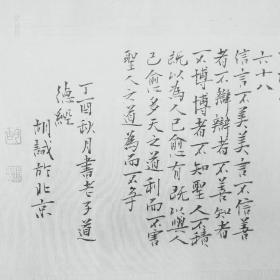 六十八
信言不美美言不信善
者不辩辩者不善知者
不博博者不知聖人不積
既以為人已愈有既以與人
已愈多天之道利而不害
聖人之道為而不争
丁酉秋月書老子道
德經
胡誠於北京